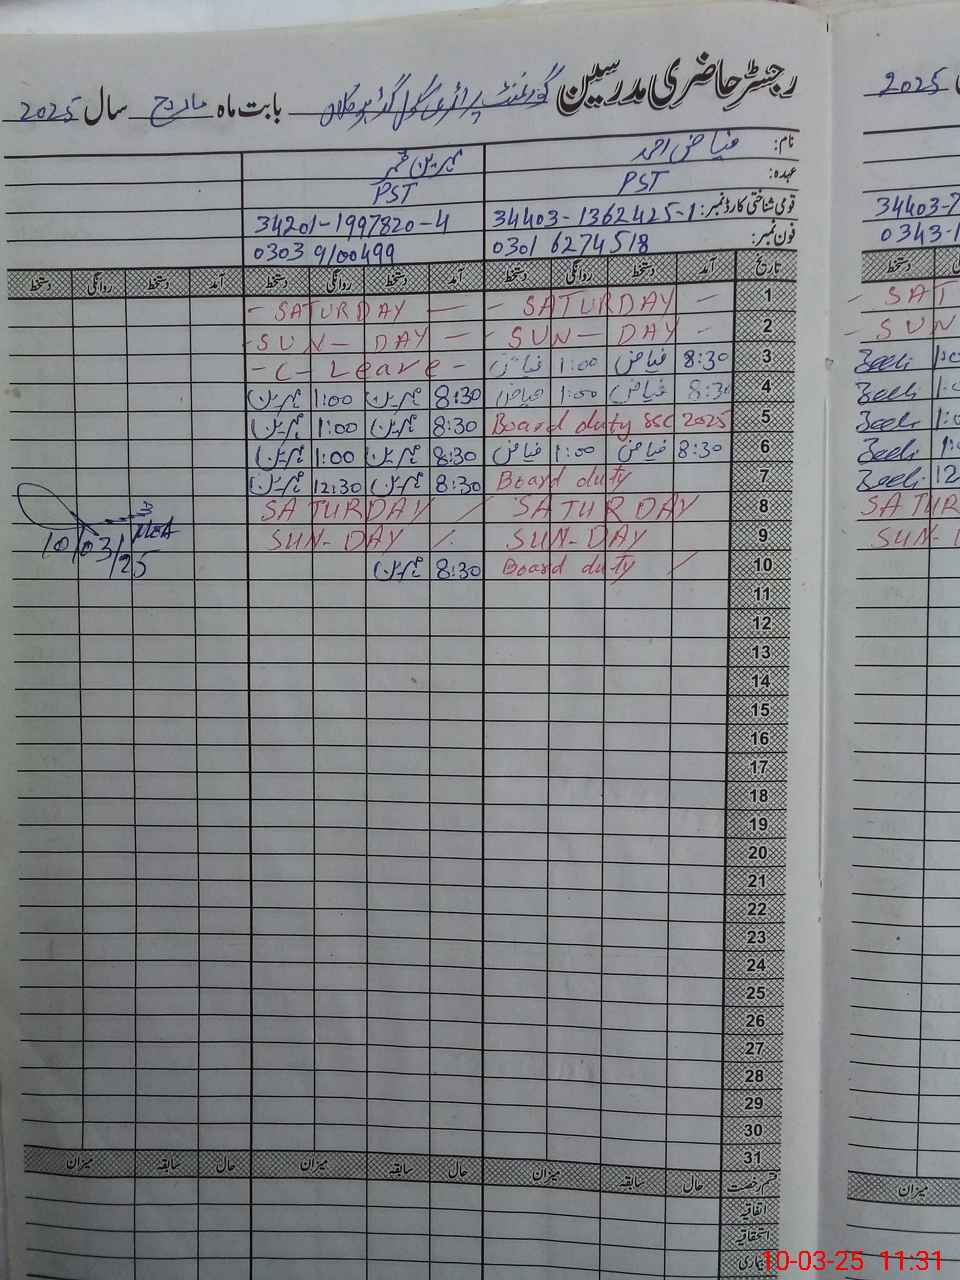 رجسٹر حاضری مدرسین گورنمنٹ پرائمری سکول بابت ماہ مارچ سال 2025
نام: فیاض احمد
عہدہ: PST PST
قومی شناختی کارڈ نمبر: 34403-1362425-1 34201-1997820-4
فون نمبر: 0301 6274518 0303 9100499
تاریخ آمد دستخط روانگی دستخط آمد دستخط روانگی دستخط آمد دستخط روانگی دستخط
1 - SATURDAY - - SATURDAY -
2 SUN - DAY - - SUN - DAY -
3 8:30 فیاض 1:00 فیاض - C - Leave -
4 8:30 فیاض 1:00 فیاض 8:30 1:00
5 Board duty SSC 2025 8:30 1:00
6 8:30 فیاض 1:00 فیاض 8:30 1:00
7 Board duty 8:30 12:30
8 SATURDAY SATURDAY
9 SUN-DAY SUN-DAY
10 Board duty 8:30
MEA
10/03/25
11
12
13
14
15
16
17
18
19
20
21
22
23
24
25
26
27
28
29
30
31
قسم رخصت حال سابقہ میزان حال سابقہ میزان حال سابقہ میزان
اتفاقیہ
استحقاقیہ
2025
34403-7
0343-1
دستخط
SAT
SUN
SATUR
SUN-D
میزان
10-03-25 11:31